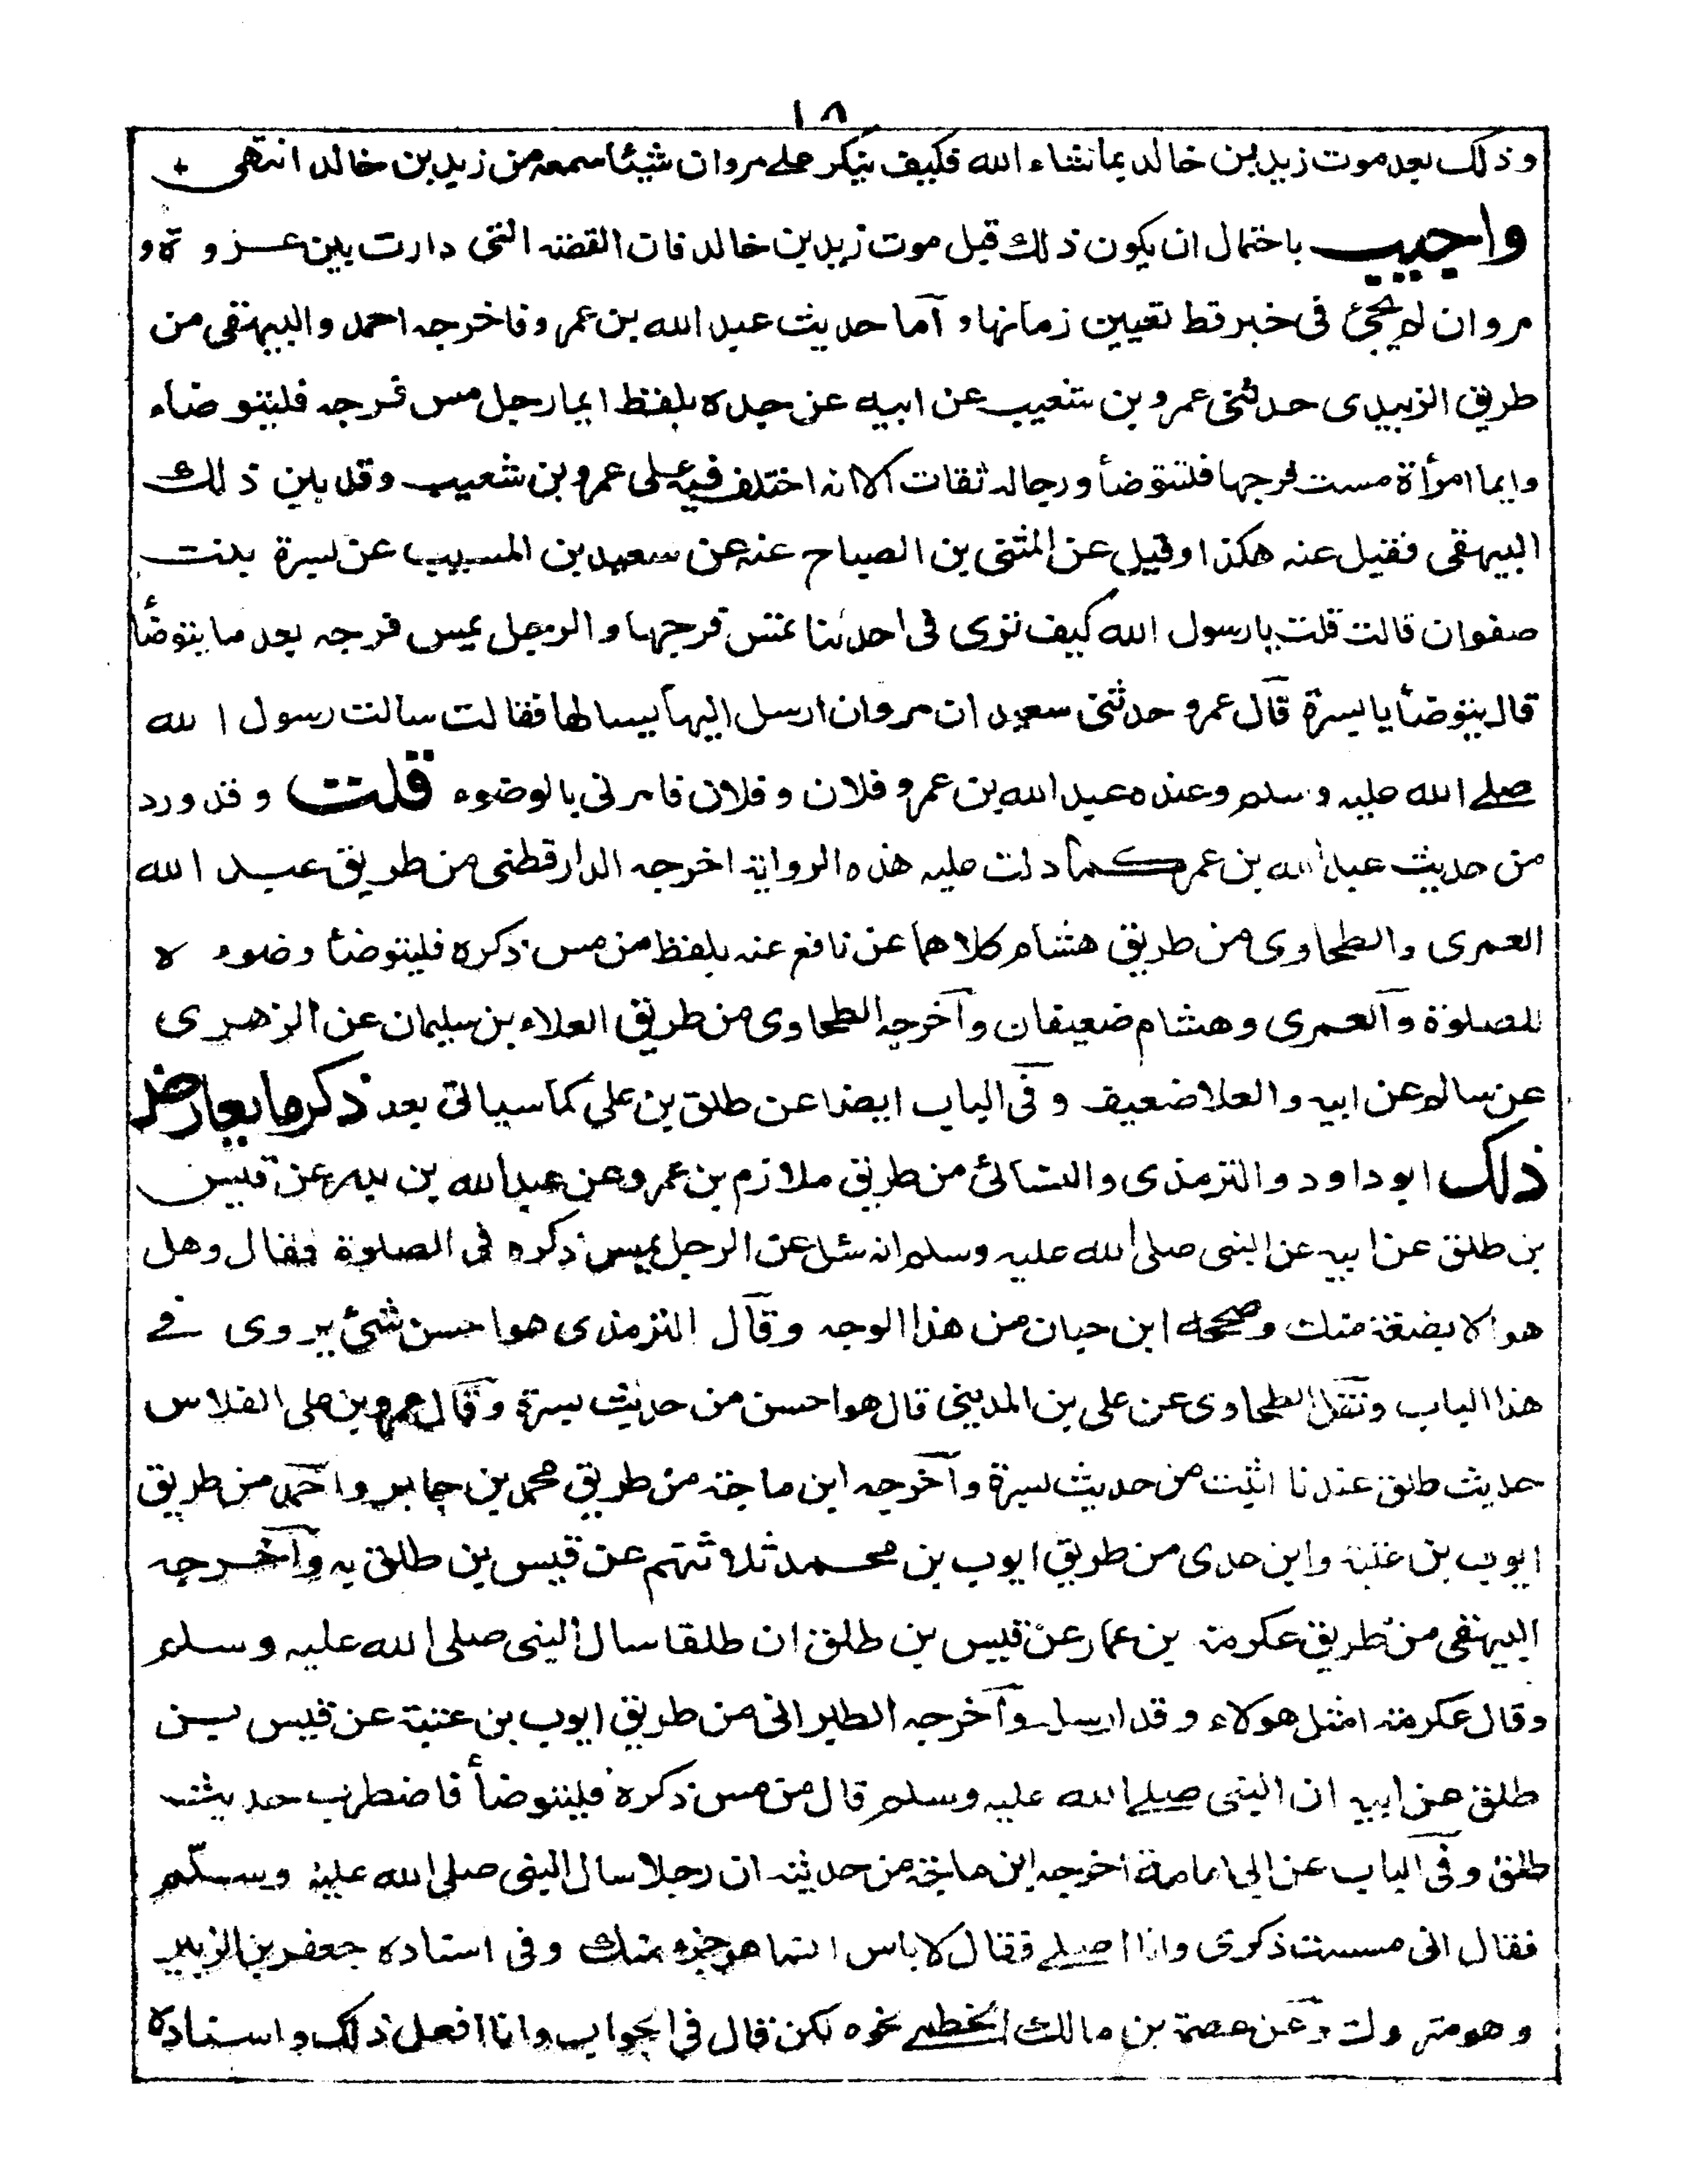 ١٨
وذلك بعد موت زيد بن خالد بما شاء الله فكيف ينكر على مروان شيئا سمعه من زيد بن خالد انتهى +
واجيب باحتمال ان يكون ذلك قبل موت زيد بن خالد فان القضة التى دارت بين عروة و
مروان لم يجئ فى خبر قط تعيين زمانها و اما حديث عبد الله بن عمرو فاخرجه احمد والبيهقى من
طريق الزبيدى حدثنى عمرو بن شعيب عن ابيه عن جده بلفظ ايما رجل مس فرجه فليتوضاء
وايما امرأة مست فرجها فلتتوضأ ورجاله ثقات الا انه اختلف فيه على عمرو بن شعيب وقد بين ذلك
البيهقى فقيل عنه هكذا وقيل عن المثنى بن الصباح عنه عن سعيد بن المسيب عن بسرة بنت
صفوان قالت قلت يا رسول الله كيف ترى فى احدنا تمس فرجها والرجل يمس فرجه بعد ما يتوضأ
قال يتوضأ يا بسرة قال عمرو حدثنى سعيد ان مروان ارسل اليها يسالها فقالت سالت رسول الله
صلے الله عليه وسلم وعنده عبد الله بن عمرو فلان و فلان فامرنى بالوضوء قلت و قد ورد
من حديث عبد الله بن عمر كما دلت عليه هذه الرواية اخرجه الدارقطنى من طريق عبد الله
العمرى والطحاوى من طريق هشام كلاهما عن نافع عنه بلفظ من مس ذكره فليتوضأ وضوءه
للصلوة والعمرى وهشام ضعيفان واخرجه الطحاوى من طريق العلاء بن سليمان عن الزهرى
عن سالم عن ابيه والعلا ضعيف وفى الباب ايضا عن طلق بن على كما سياتى بعد ذكر ما يعارض
ذلك ابو داود والترمذى والنسائى من طريق ملازم بن عمرو عن عبد الله بن بدر عن قيس
بن طلق عن ابيه عن النبى صلى الله عليه وسلم انه سئل عن الرجل يمس ذكره فى الصلوة فقال وهل
هو الا بضعة منك وصححه ابن حبان من هذا الوجه وقال الترمذى هو احسن شئ يروى فے
هذا الباب ونقل الطحاوى عن على بن المدينى قال هو احسن من حديث بسرة وقال عمرو بن على الفلاس
حديث طلق عندنا اثبت من حديث بسرة واخرجه ابن ماجة من طريق محمد بن جابر واحمد من طريق
ايوب بن عتبة وابن عدى من طريق ايوب بن محمد ثلاثتهم عن قيس بن طلق به واخرجه
البيهقى من طريق عكرمة بن عمار عن قيس بن طلق ان طلقا سال النبى صلى الله عليه وسلم
وقال عكرمة امثل هولاء وقد ارسل واخرجه الطبرانى من طريق ايوب بن عتبة عن قيس بن
طلق عن ابيه ان النبى صلے الله عليه وسلم قال من مس ذكره فليتوضأ فاضطرب حديث
طلق وفى الباب عن ابى امامة اخرجه ابن ماجة من حديثه ان رجلا سال النبى صلى الله عليه وسلم
فقال انى مسست ذكرى وانا اصلے فقال لا باس انما هو جزء منك وفى اسناده جعفر بن الزبير
وهو متروك وعن عصمة بن مالك الخطمے نحوه لكن قال فى الجواب وانا افعل ذلك واسناده